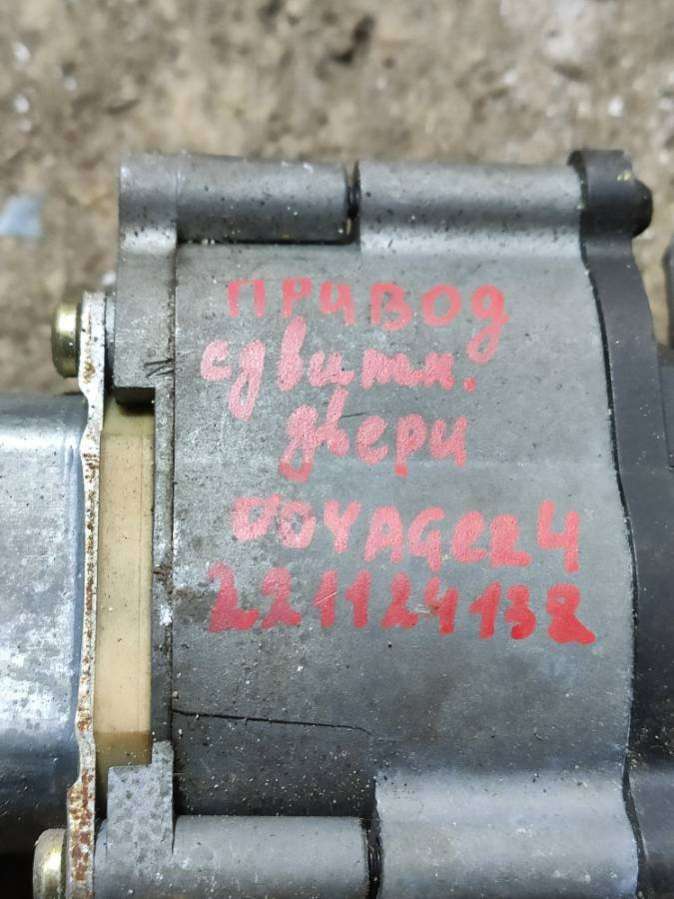 ПРИВОд
сдвижн.
двери
VOYAGER 4
221124132